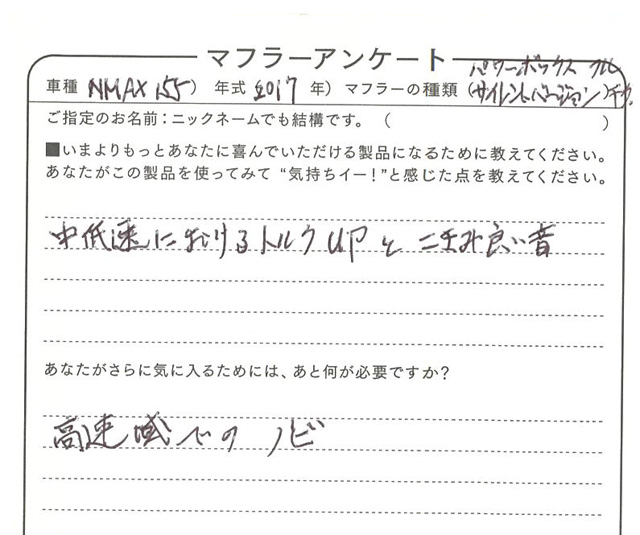 マフラーアンケート
パワーボックス フル
車種 NMAX 155) 年式 2017 年) マフラーの種類 (サイレントバージョン)チタン
ご指定のお名前:ニックネームでも結構です。( )
■いまよりもっとあなたに喜んでいただける製品になるために教えてください。
あなたがこの製品を使ってみて“気持ちイー!”と感じた点を教えてください。
中低速におけるトルクUPと こきみ良い音
あなたがさらに気に入るためには、あと何が必要ですか?
高速域でのノビ